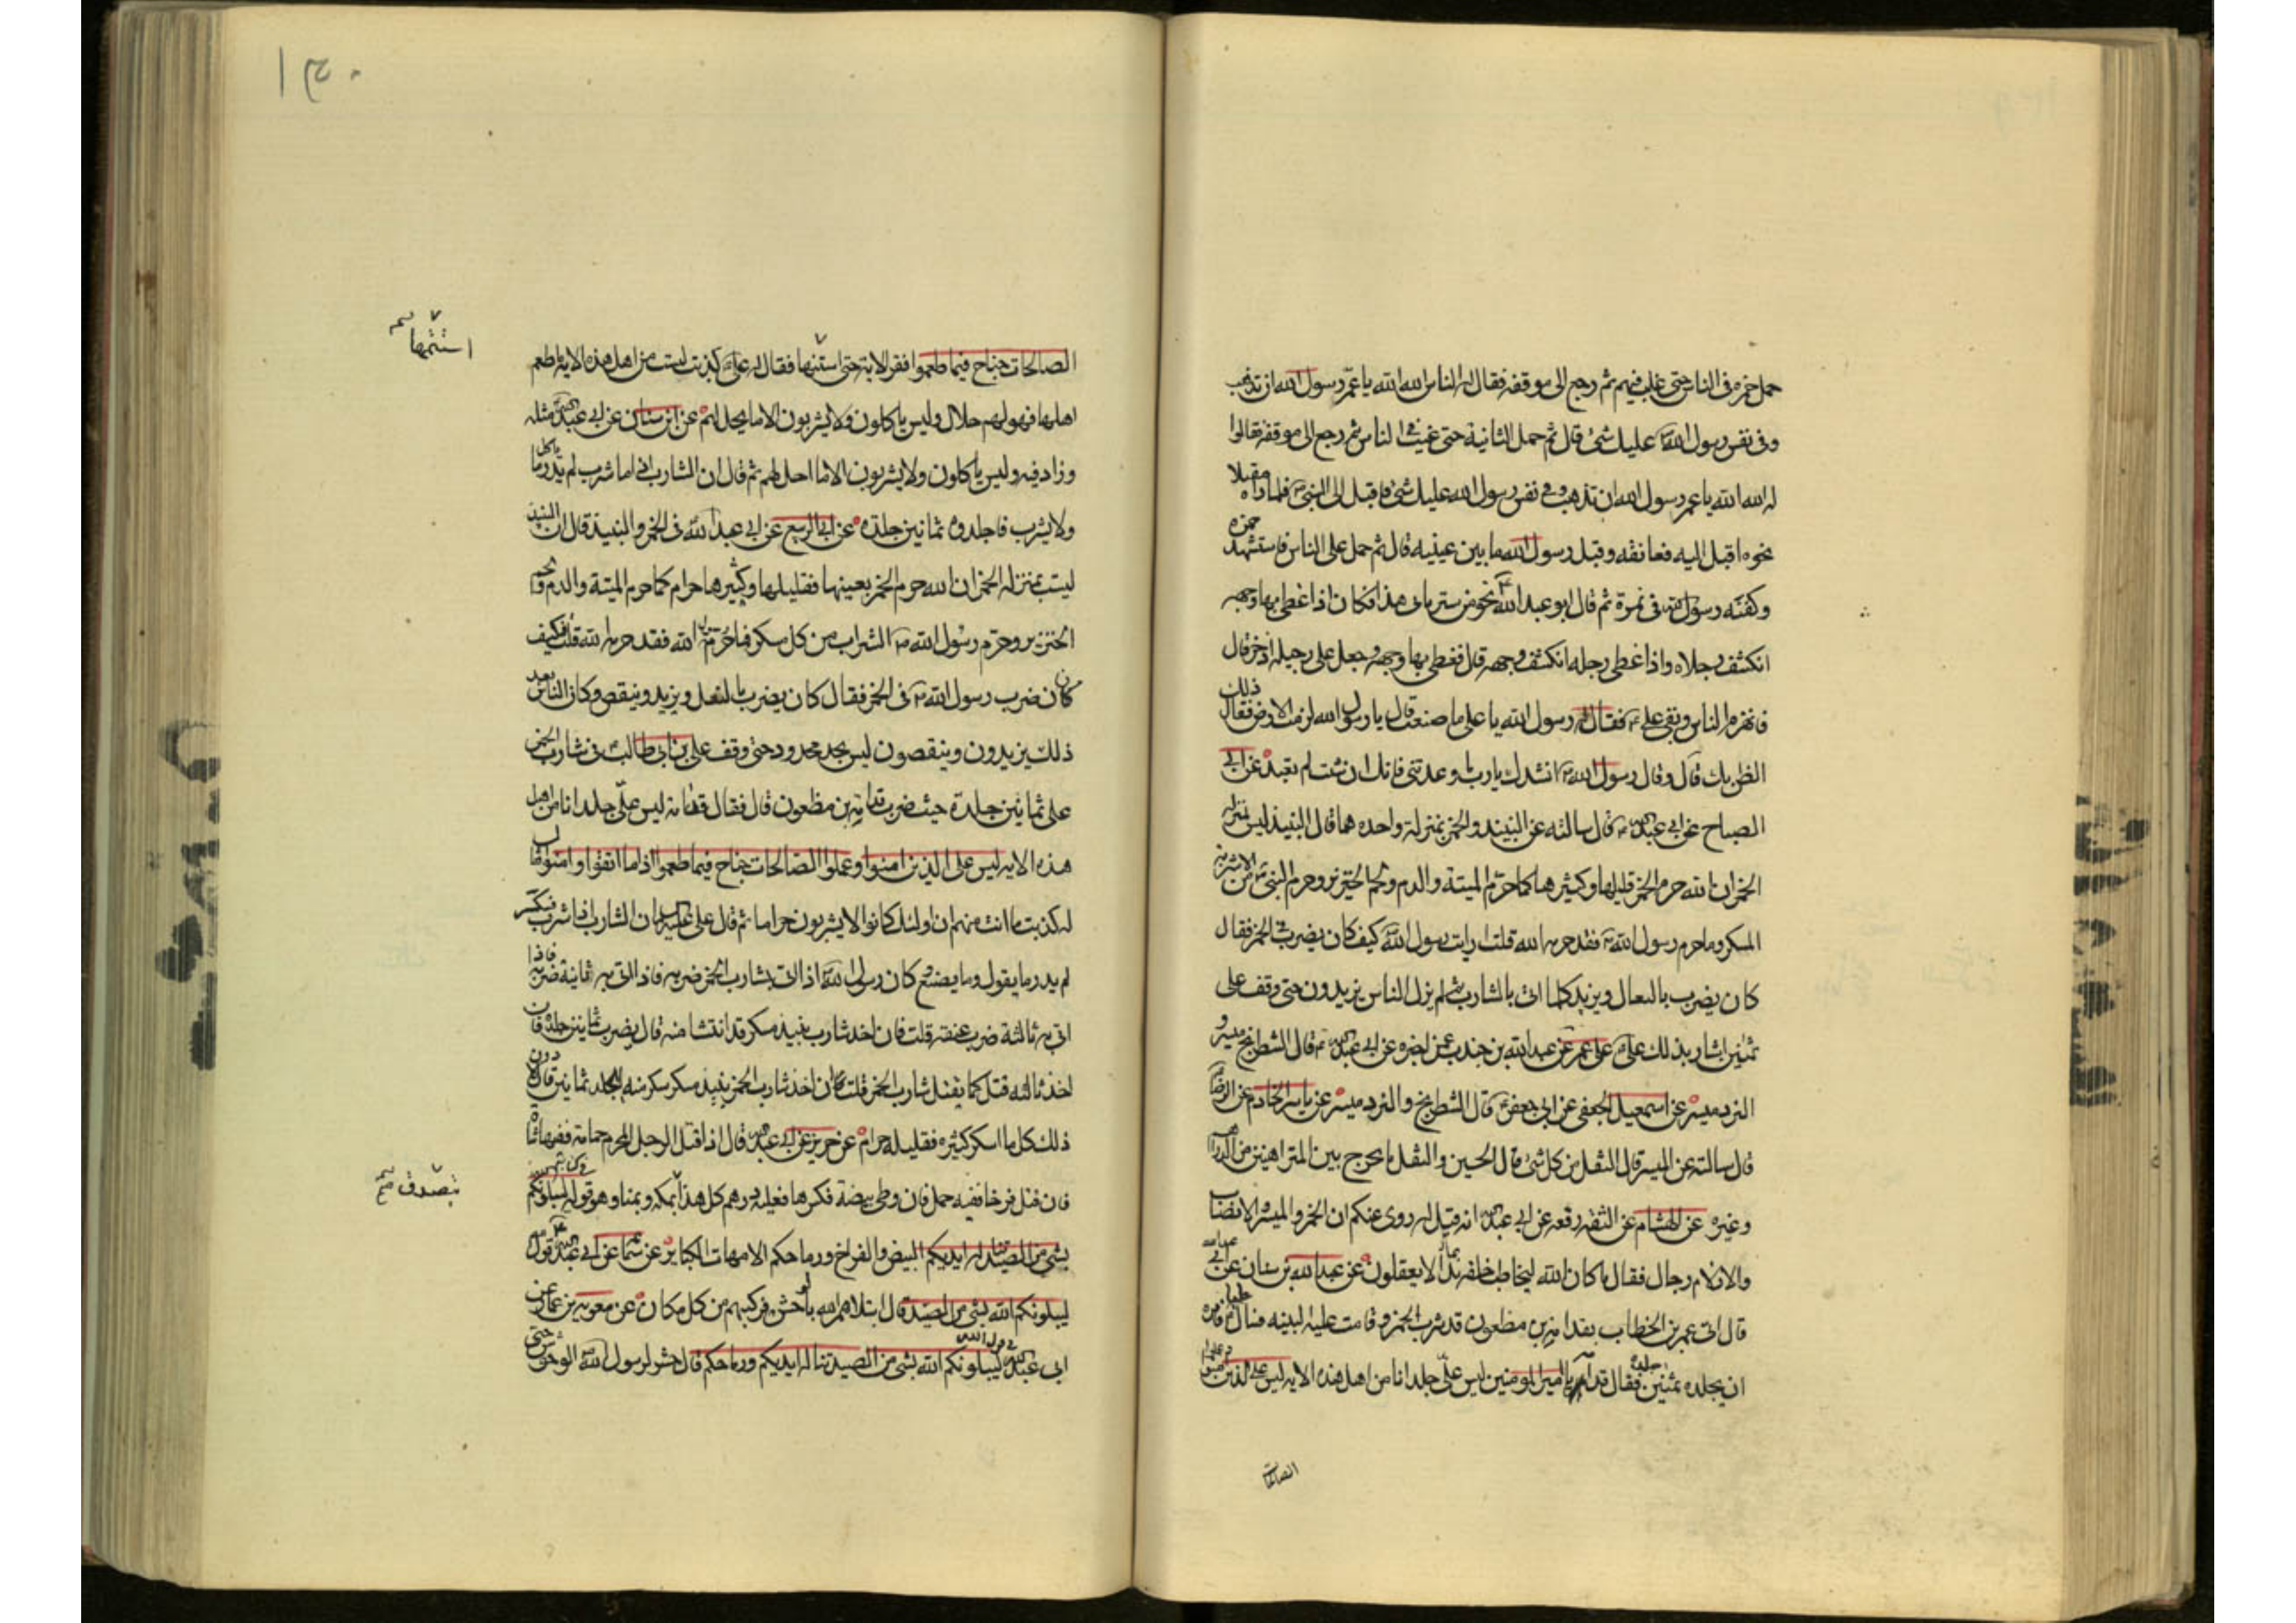 حمل حمزه فى الناس حتى غلب فيهم ثم رجع الى موقفه فقال له الناس الله الله يا عم رسول الله ان تذهب
وفى نفس رسول الله عليك شئ قال ثم حمل الثانية حتى غيب فى الناس ثم رجع الى موقفه فقالوا
له الله الله يا عم رسول الله ان تذهب وفى نفس رسول الله عليك شئ فاقبل الى النبى فلما راه مقبلا
نحوه اقبل اليه فعانقه وقبل رسول الله ما بين عينيه قال ثم حمل على الناس فاستشهد حمزه
وكفنه رسول الله فى نمرة ثم قال ابو عبد الله نحو من ستر بابى هذا فكان اذا غطى بها وجهه
انكشف رجلاه واذا غطى رجله انكشف وجهه قال فغطى بها وجهه وجعل على رجليه اذخر قال
فانهزم الناس وبقى على فقال له رسول الله يا على ما صنعت قال يا رسول الله لزمت الارض فقال ذلك
الظن بك قال وقال رسول الله انشدك يا رب ما وعدتنى فانك ان شئت لم تعبد عن ابى
الصباح عن ابى عبد الله قال سالته عن النبيذ والخمر بمنزلة واحده هما قال النبيذ ليس بمنزله
الخمر ان الله حرم الخمر قليلها وكثيرها كما حرم الميتة والدم ولحم الخنزير وحرم النبى من الاشربه
المسكر وما حرم رسول الله فقد حرمه الله قلت ارايت رسول الله كيف كان يضرب فى الخمر فقال
كان يضرب بالنعال ويزيد كلما اتى بالشارب ثم لم يزل الناس يزيدون حتى وقف على
ثمنين اشار بذلك على على عمر عن عبد الله بن جندب عمن اخبره عن ابى عبد الله قال الشطرنج ميسر و
النرد ميسر عن اسمعيل الجعفى عن ابى جعفر قال الشطرنج والنرد ميسر عن ياسر الخادم عن الرضا
قال سالته عن الميسر قال الثقل من كل شئ قال الحسين والثقل ما يخرج بين المتراهنين من الدراهم
وغيره عن الهشام عن الثقه رفعه عن ابى عبد الله انه قيل له روى عنكم ان الخمر والميسر والانصاب
والازلام رجال فقال ما كان الله ليخاطب خلقه بما لا يعقلون عن عبد الله بن سنان عن ابى عبد الله
قال اتى عمر بن الخطاب بقدامه بن مظعون قد شرب الخمر وقامت عليه البينه فسال عليا فامره
ان يجلده ثمنين جلده فقال قدامه يا امير المومنين ليس على جلد انا من اهل هذه الايه ليس على الذين امنوا وعملوا
الصالحات
١٣٠
الصالحات جناح فيما طعموا فقرا الاية حتى استنها فقال له على كذبت لست من اهل هذه الايه ما طعم
استتمها
اهلها فهو لهم حلال وليس ياكلون ولا يشربون الا ما يحل لهم عن ابن سنان عن ابى عبد الله مثله
وزاد فيه وليس ياكلون ولا يشربون الا ما احل لهم ثم قال ان الشارب اذا ما شرب لم يدر ما ياكل
ولا يشرب فاجلدوه ثمانين جلدة عن ابى الربيع عن ابى عبد الله فى الخمر والنبيذ قال ان النبيذ
ليست بمنزله الخمر ان الله حرم الخمر بعينها فقليلها وكثيرها حرام كما حرم الميتة والدم ولحم
الخنزير وحرم رسول الله الشراب من كل مسكر فما حرم رسول الله فقد حرمه الله قلت فكيف
كان ضرب رسول الله فى الخمر فقال كان يضرب بالنعل ويزيد وينقص وكان الناس بعد
ذلك يزيدون وينقصون ليس بحد محدود حتى وقف على بن ابى طالب فى شارب الخمر
على ثمانين جلدة حيث ضرب قدامة بن مظعون قال فقال قدامة ليس على جلد انا من اهل
هذه الايه ليس على الذين امنوا وعملوا الصالحات جناح فيما طعموا اذا ما اتقوا وامنوا فقال
له كذبت ما انت منهم ان اولئك كانوا لا يشربون حراما ثم قال على عليه السلام ان الشارب اذا شرب فسكر
لم يدر ما يقول وما يصنع كان رسول الله اذا اتى بشارب الخمر ضربه فاذا اتى به ثانية ضربه فاذا
اتى به ثالثة ضرب عنقه قلت فان اخذ شارب نبيذ مسكر قد انتشا منه قال يضرب ثمانين جلدة فان
اخذ ثالثه قتل كما يقتل شارب الخمر قلت فان اخذ شارب الخمر نبيذ مسكر سكر منه ايجلد ثمانين قال لا دون
ذلك كل ما اسكر كثيره فقليله حرام عن حريز عن ابى عبد الله قال اذا قتل الرجل المحرم حمامة ففيها شاة
فان قتل فرخا ففيه حمل فان وطى بيضة فكسرها فعليه درهم كل هذا بمكه وبمنا وهو قوله ليبلونكم
يتصدق
بشئ من الصيد تناله ايديكم البيض والفراخ ورماحكم الامهات الكبار عن سماعة عن ابى عبد الله قول
ليبلونكم الله بشئ من الصيد قال ابتلاهم الله بالوحش فركبهم من كل مكان عن معويه بن عمار عن
ابى عبد الله فى قول الله ليبلونكم الله بشئ من الصيد تناله ايديكم ورماحكم قال حشر لرسول الله الوحوش حتى